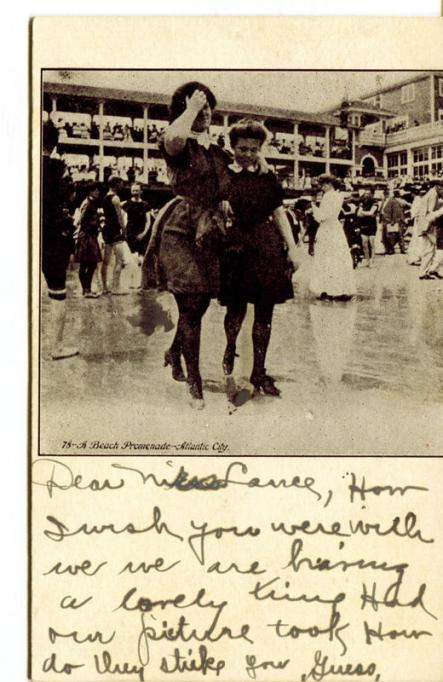 78-A Beach Promenade-Atlantic City.
Dear Miss Lance, How
I wish you were with
we we are having
a lovely time Had
our picture took How
do they strike you, Guess,